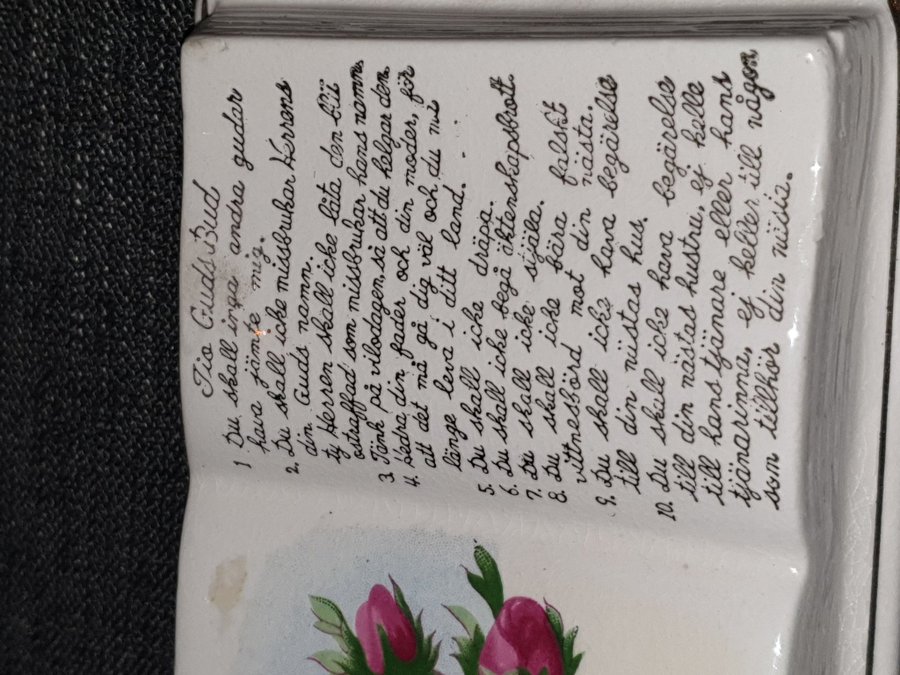 Tio Guds Bud
1 Du skall inga andra gudar
hava jämte mig.
2. Du skall icke missbrukar Herrens
din Guds namn.
ty Herren skall icke låta den bli
ostraffad som missbrukar hans namn.
3. Tänk på vilodagen, så att du helgar den.
4. Hedra din fader och din moder, för
att det må gå dig väl och du må
länge leva i ditt land.
5. Du skall icke dräpa.
6. Du skall icke begå äktenskapsbrott.
7. Du skall icke stjäla.
8. Du skall icke bära falskt
vittnesbörd mot din nästa.
9. Du skall icke hava begärelse
till din nästas hus.
10. Du skall icke hava begärelse
till din nästs hustru, ej helle
till hans tjänare eller hans
tjänarinna, ej heller till någon
som tillhör din nästa.